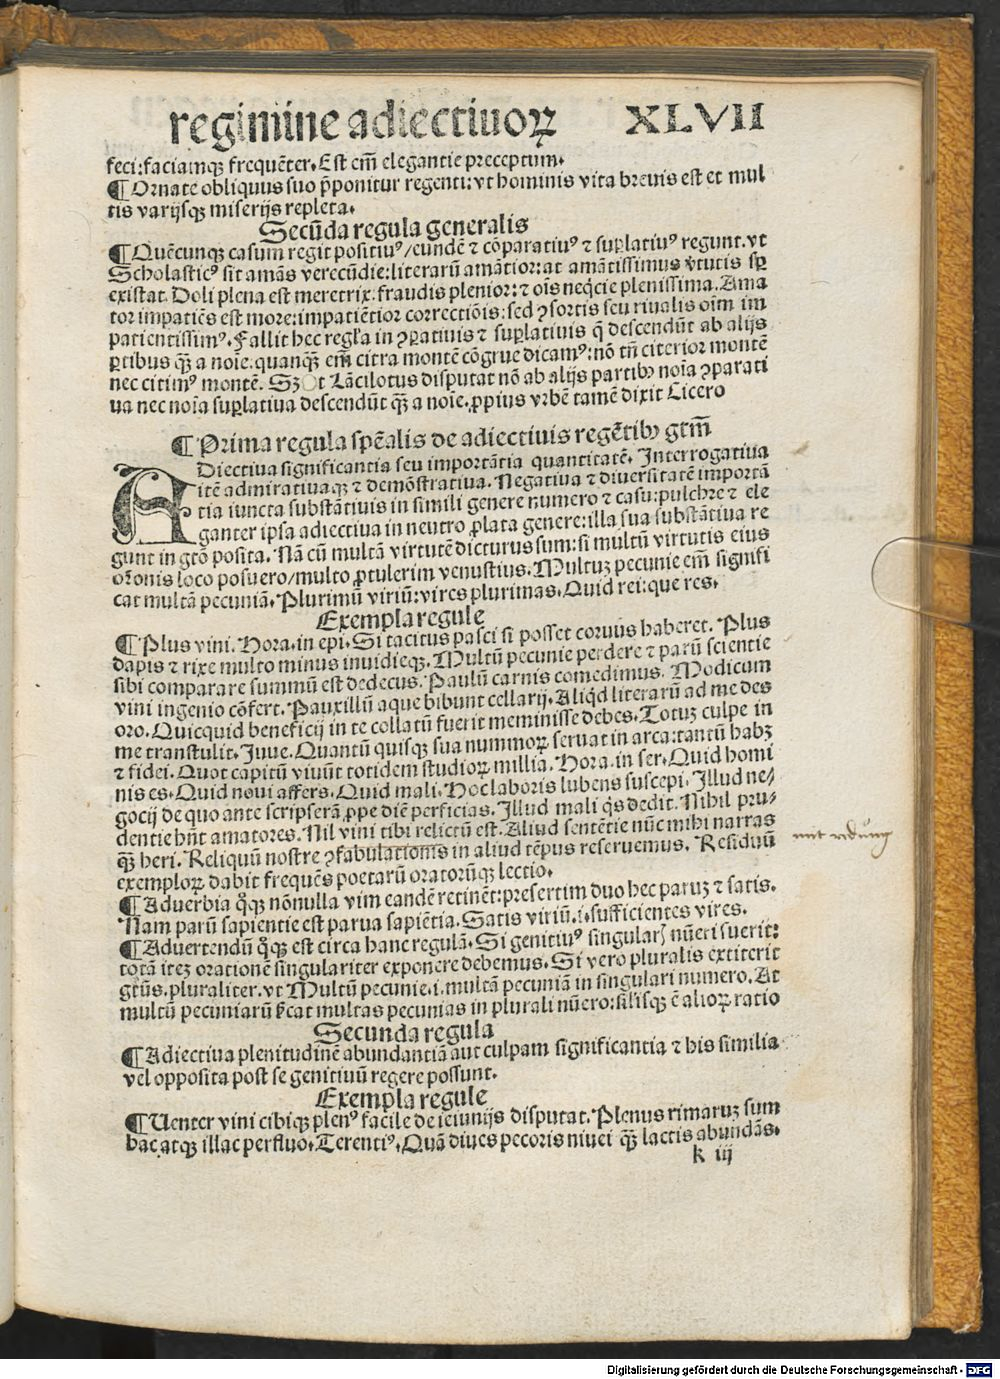 regimine adiectiuoꝝ XLVII
feci:faciamqꝫ frequēter. Est em̄ elegantie preceptum.
¶ Ornate obliquus suo p̄ponitur regenti: vt hominis vita breuis est et mul
tis varijsqꝫ miserijs repleta.
Secūda regula generalis
¶ Quēcunqꝫ casum regit positiuꝰ/eundē ⁊ cōparatiuꝰ ⁊ suꝑlatiuꝰ regunt. vt
Scholasticꝰ sit amās verecūdie: literarū amātior: at amātissimus v̄tutis sꝑ
existat. Doli plena est meretrix. fraudis plenior: ⁊ oīs neq̄cie plenissima. Ama
tor impatiēs est more: impatiētior correctiōis: sed ꝯsortis seu riualis oīm im
patientissimꝰ. Fallit hec regl̄a in ꝯꝑatiuis ⁊ suꝑlatiuis q̄ descendūt ab alijs
ꝑtibus qꝫ̄ a noīe. quanqꝫ em̄ citra montē cōgrue dicamꝰ: nō tn̄ citerior montē
nec citimꝰ montē. Sꝫ t Lācilotus disputat nō ab alijs partibꝰ noīa ꝯparati
ua nec noīa suꝑlatiua descendūt qꝫ̄ a noīe. ꝓpius vrbē tamē dixit Cicero
¶ Prima regula spēalis de adiectiuis regētibꝰ gtm̄
ADiectiua significantia seu importātia quantitatē. Interrogatiua
itē admiratiuaqꝫ ⁊ demōstratiua. Negatiua ⁊ diuersitatē importā
tia iuncta substātiuis in simili genere numero ⁊ casu: pulchre ⁊ ele
ganter ipsa adiectiua in neutro ꝓlata genere: illa sua substātiua re
gunt in gtō posita. Nā cū multā virtutē dicturus sum: si multū virtutis eius
or̄onis loco posuero/multo ꝓtulerim venustius. Multuꝫ pecunie em̄ signifi
cat multā pecuniā. Plurimū viriū: vires plurimas. Quid rei: que res.
Exempla regule
¶ Plus vini. Hora. in epi. Si tacitus pasci si posset coruus haberet. Plus
dapis ⁊ rixe multo minus inuidieqꝫ. Multū pecunie perdere ⁊ parū scientie
sibi comparare summū est dedecus. Paulū carnis comedimus. Modicum
vini ingenio cōfert. Pauxillū aque bibunt cellarij. Aliqd̄ literarū ad me des
oro. Quicquid beneficij in te collatū fuerit meminisse debes. Totuꝫ culpe in
me transtulit. Juue. Quantū quisqꝫ sua nummoꝝ seruat in arca: tantū habꝫ
⁊ fidei. Quot capitū viuūt totidem studioꝝ millia. Hora. in ser. Quid homi
nis es. Quid noui affers. Quid mali. Hoc laboris lubens suscepi. Illud ne⸗
gocij de quo ante scripserā, ꝓpe diē perficias. Illud mali q̄s dedit. Nihil pru⸗
dentie hn̄t amatores. Nil vini tibi relictū est. Aliud sentētie nūc mihi narras
qꝫ̄ heri. Reliquū nostre ꝯfabulationis in aliud tēpus reseruemus. Residuū
exemploꝝ dabit frequēs poetarū oratorūqꝫ lectio.
mit rdung
¶ Aduerbia q̊qꝫ nōnulla vim eandē retinēt: presertim duo hec paruꝫ ⁊ satis.
Nam parū sapientie est parua sapiētia. Satis viriū .i. sufficientes vires.
¶ Aduertendū q̊qꝫ est circa hanc regulā. Si genitiuꝰ singularꝭ nūeri fuerit:
totā iteꝫ orationē singulariter exponere debemus. Si vero pluralis extiterit
gtūs. pluraliter. vt Multū pecunie .i. multā pecuniā in singulari numero. At
multū pecuniarū sc̄at multas pecunias in plurali nūero: sil̄isqꝫ ē alioꝝ ratio
Secunda regula
¶ Adiectiua plenitudinē abundantiā aut culpam significantia ⁊ his similia
vel opposita post se genitiuū regere possunt.
Exempla regule
¶ Uenter vini cibiqꝫ plenꝰ facile de ieiunijs disputat. Plenus rimaruꝫ sum
hac atqꝫ illac perfluo. Terentiꝰ. Quā diues pecoris niuei qꝫ̄ lactis abundās.
k iij
Digitalisierung gefördert durch die Deutsche Forschungsgemeinschaft - DFG